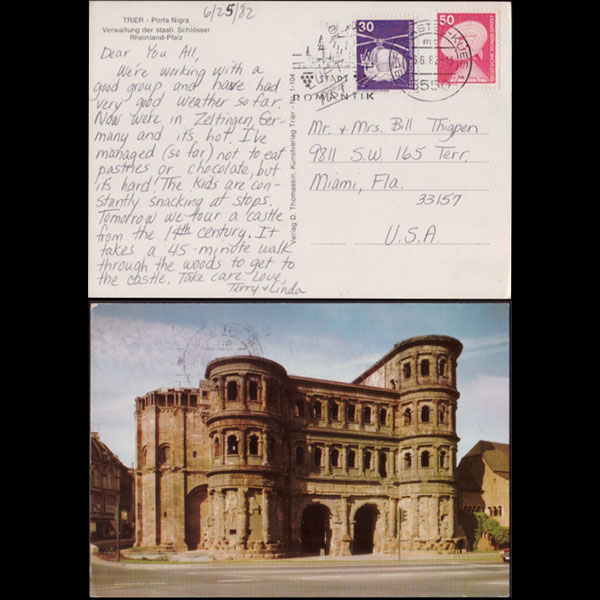 TRIER - Porta Nigra
Verwaltung der staatl. Schlösser
Rheinland-Pfalz
6/25/82
Dear You All,
We're working with a
good group and have had
very good weather so far.
Now we're in Zeltingen, Ger-
many and it's hot. I've
managed (so far) not to eat
pastries or chocolate, but
it's hard! The kids are con-
stantly snacking at stops.
Tomorrow we tour a castle
from the 14th century. It
takes a 45-minute walk
through the woods to get to
the castle. Take care. Love,
Terry & Linda
Verlag D. Thomassin, Kunstverlag Trier - Nr. 1-104
30
50
DEUTSCHE BUNDESPOST
STADT
ROMANTIK
KUES
5550
Mr. & Mrs. Bill Thigpen
9811 S.W. 165 Terr.
Miami, Fla.
33157
U.S.A.